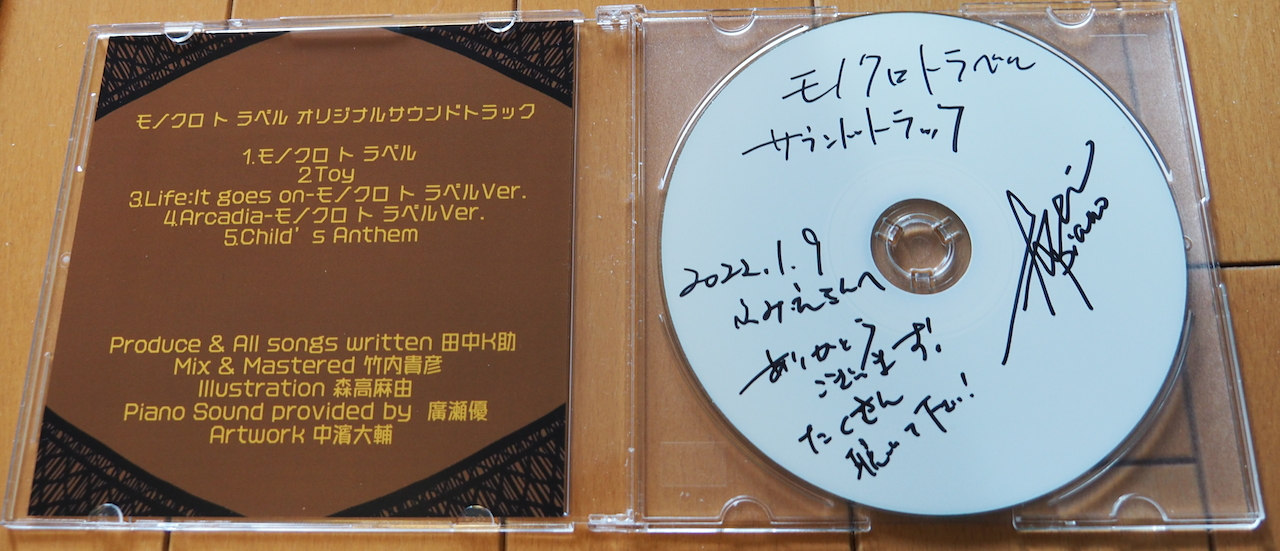 モノクロ ト ラベル オリジナルサウンドトラック
1.モノクロ ト ラベル
2.Toy
3.Life:It goes on-モノクロ ト ラベルVer.
4.Arcadia-モノクロ ト ラベルVer.
5.Child’s Anthem
Produce & All songs written 田中K助
Mix & Mastered 竹内貴彦
Illustration 森高麻由
Piano Sound provided by 廣瀬優
Artwork 中濱大輔
モノクロトラベル
サウンドトラック
2022.1.9
ふみえさんへ
ありがとう
ございます!
たくさん
聴いて下さい!
Piano